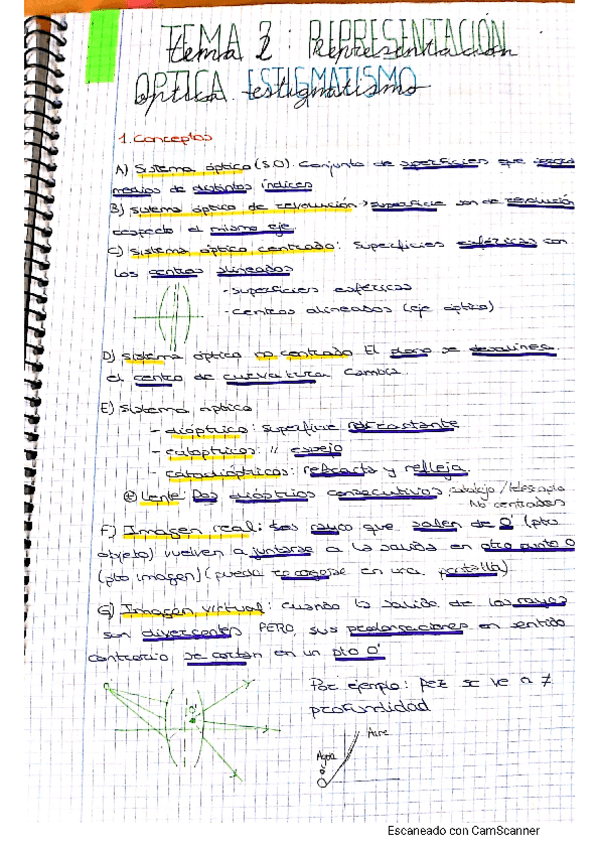 TEMA 2: REPRESENTACIÓN
Tema 2: Representación
OPTICA. ESTIGMATISMO
Optica. Estigmatismo
1. Conceptos
A) Sistema óptico (S.O). Conjunto de superficies que
medios de distintos índices
B) Sistema óptico de revolución → superficie son de revolución
respecto el mismo eje.
C) Sistema óptico centrado: Superficies esféricas con
los centros alineados
- superficies esféricas
- centros alineados (eje óptico)
D) Sistema óptico no centrado El plano se desalinea
el centro de curvatura cambia
E) Sistema optico
- dióptrico: superficie refractante
- catoptricos: " espejo
- catadióptricos: refracta y refleja.
Lente: Dos dioptrios consecutivos catalejo / telescopio
No centrados
F) Imagen real: Los rayos que salen de O (pto
objeto) vuelven a juntarse a la salida en otro punto O'
(pto imagen) (puede recogerse en una pantalla)
G) Imagen virtual: cuando la salida de los rayos
son divergentes PERO, sus prolongaciones en sentido
contrario se cortan en un pto O'
Por ejemplo: Pez se ve a ≠
profundidad
O'
Aire
Agua
Escaneado con CamScanner